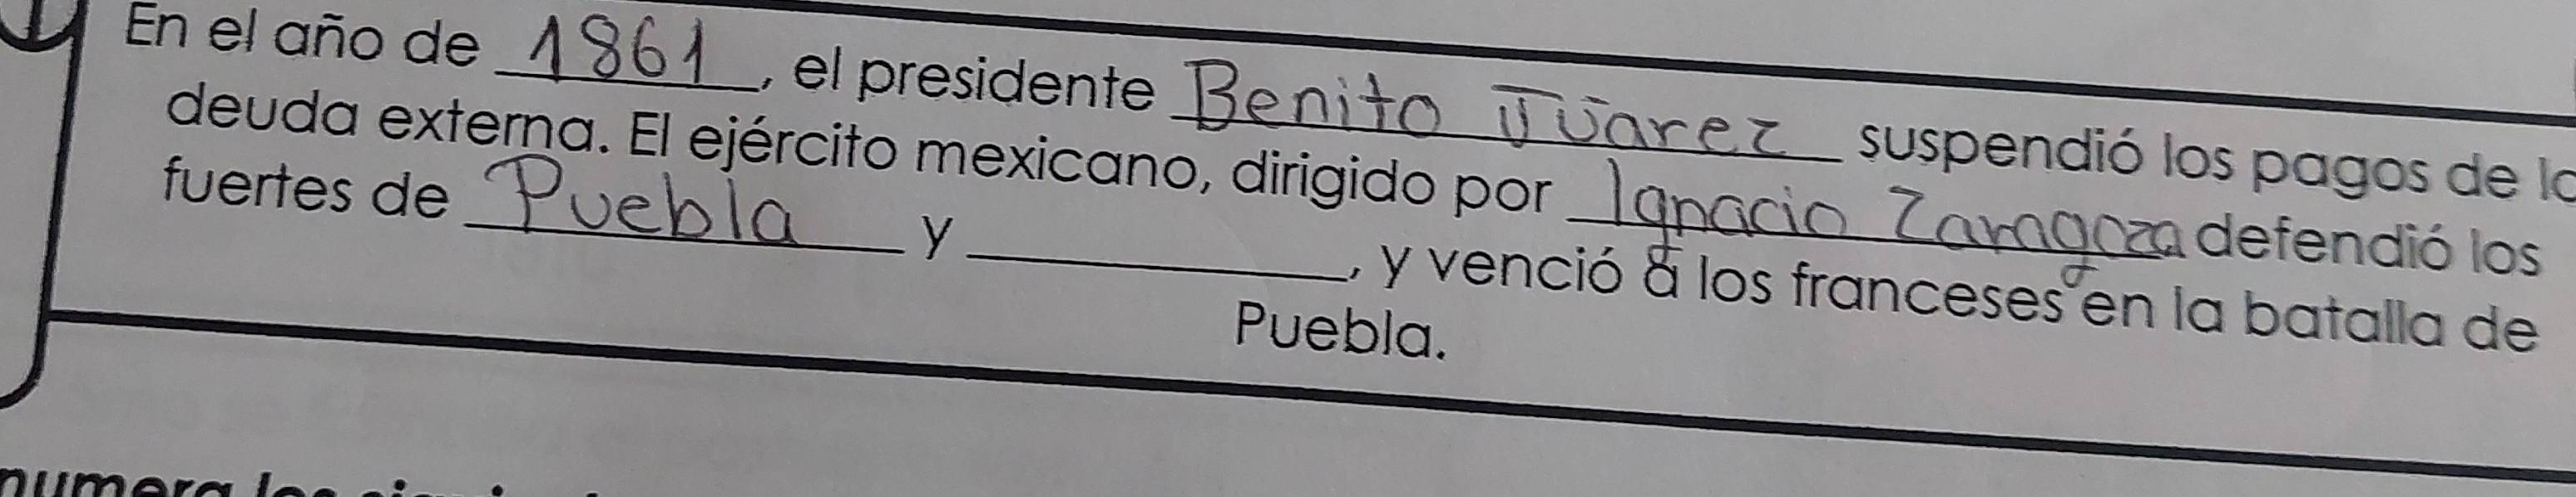 En el año de 1861, el presidente Benito Júarez suspendió los pagos de la
deuda externa. El ejército mexicano, dirigido por Ignacio Zaragoza defendió los
fuertes de Puebla y ____________, y venció a los franceses en la batalla de
Puebla.
numera los